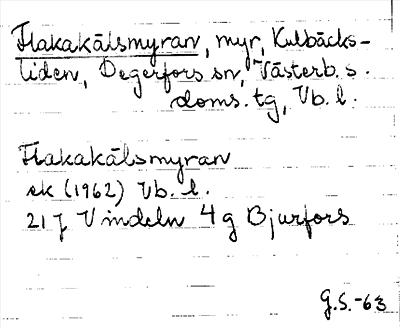 Flakakålsmyran, myr, Kulbäcks-
liden, Degerfors sn, Västerb. s.
doms. tg, Vb. l.
Flakakålsmyran
ek (1962) Vb. l.
21 J Vindeln 4 g Bjurfors
G.S.-63